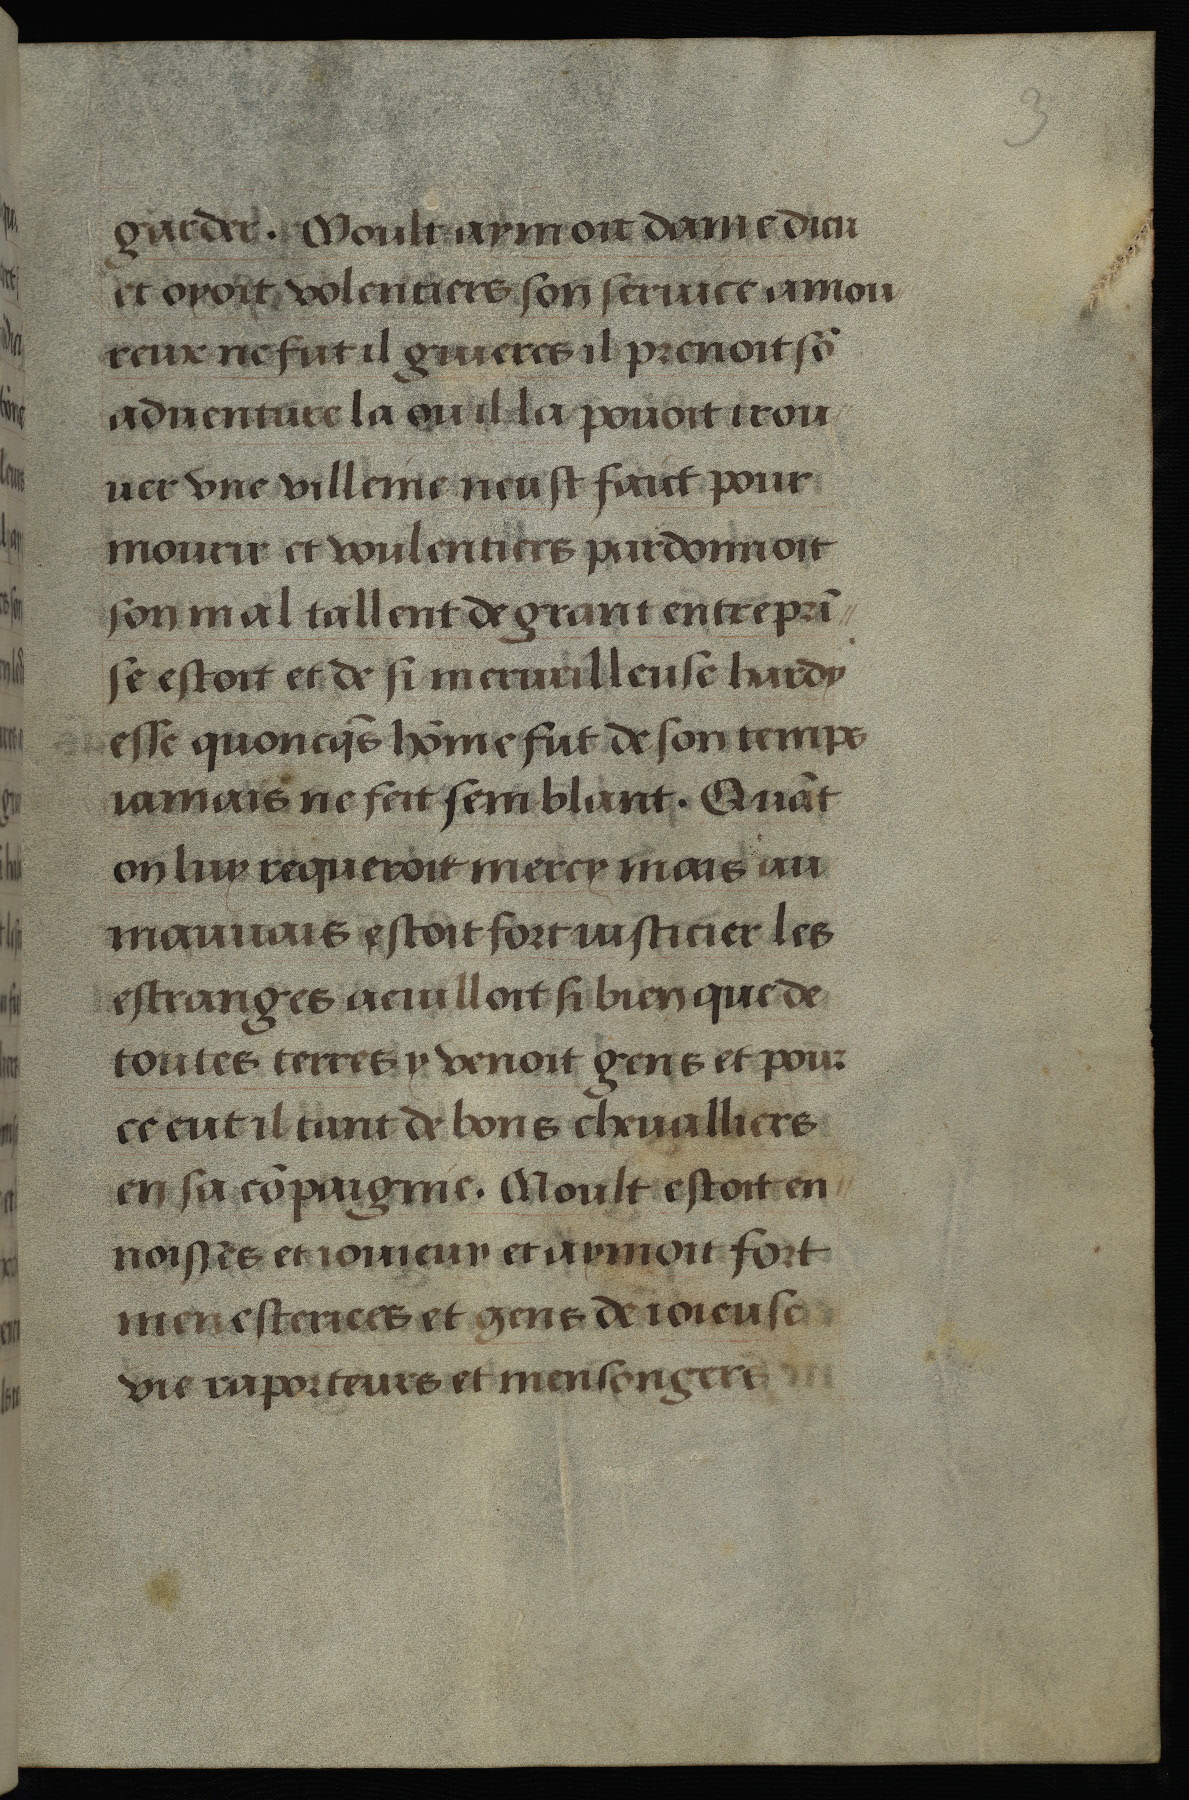 3
garder. Moult aymoit dame dieu
et oyoit volentiers son seruice amou
reux ne fut il guieres il prenoit sõ
aduenture la ou il la pouoit trou
uer vne villenie neust faict pour
mourir et voulentiers pardonnoit
son mal tallent de grant entreprĩ//
se estoit et de si merueilleuse hardy
esse quoncq̃s hõme fut de son temps
iamais ne feit semblant. Quãt
on luy requeroit mercy mais au
mauuais estoit fort iusticier les
estranges acuilloit si bien que de
toutes terres y venoit gens et pour
ce eut il tant de bons cheualliers
en sa cõpaignie. Moult estoit en//
noisses et ioyeux et aymoit fort
menesteriers et gens de ioieuse
vie raporteurs et mensongers